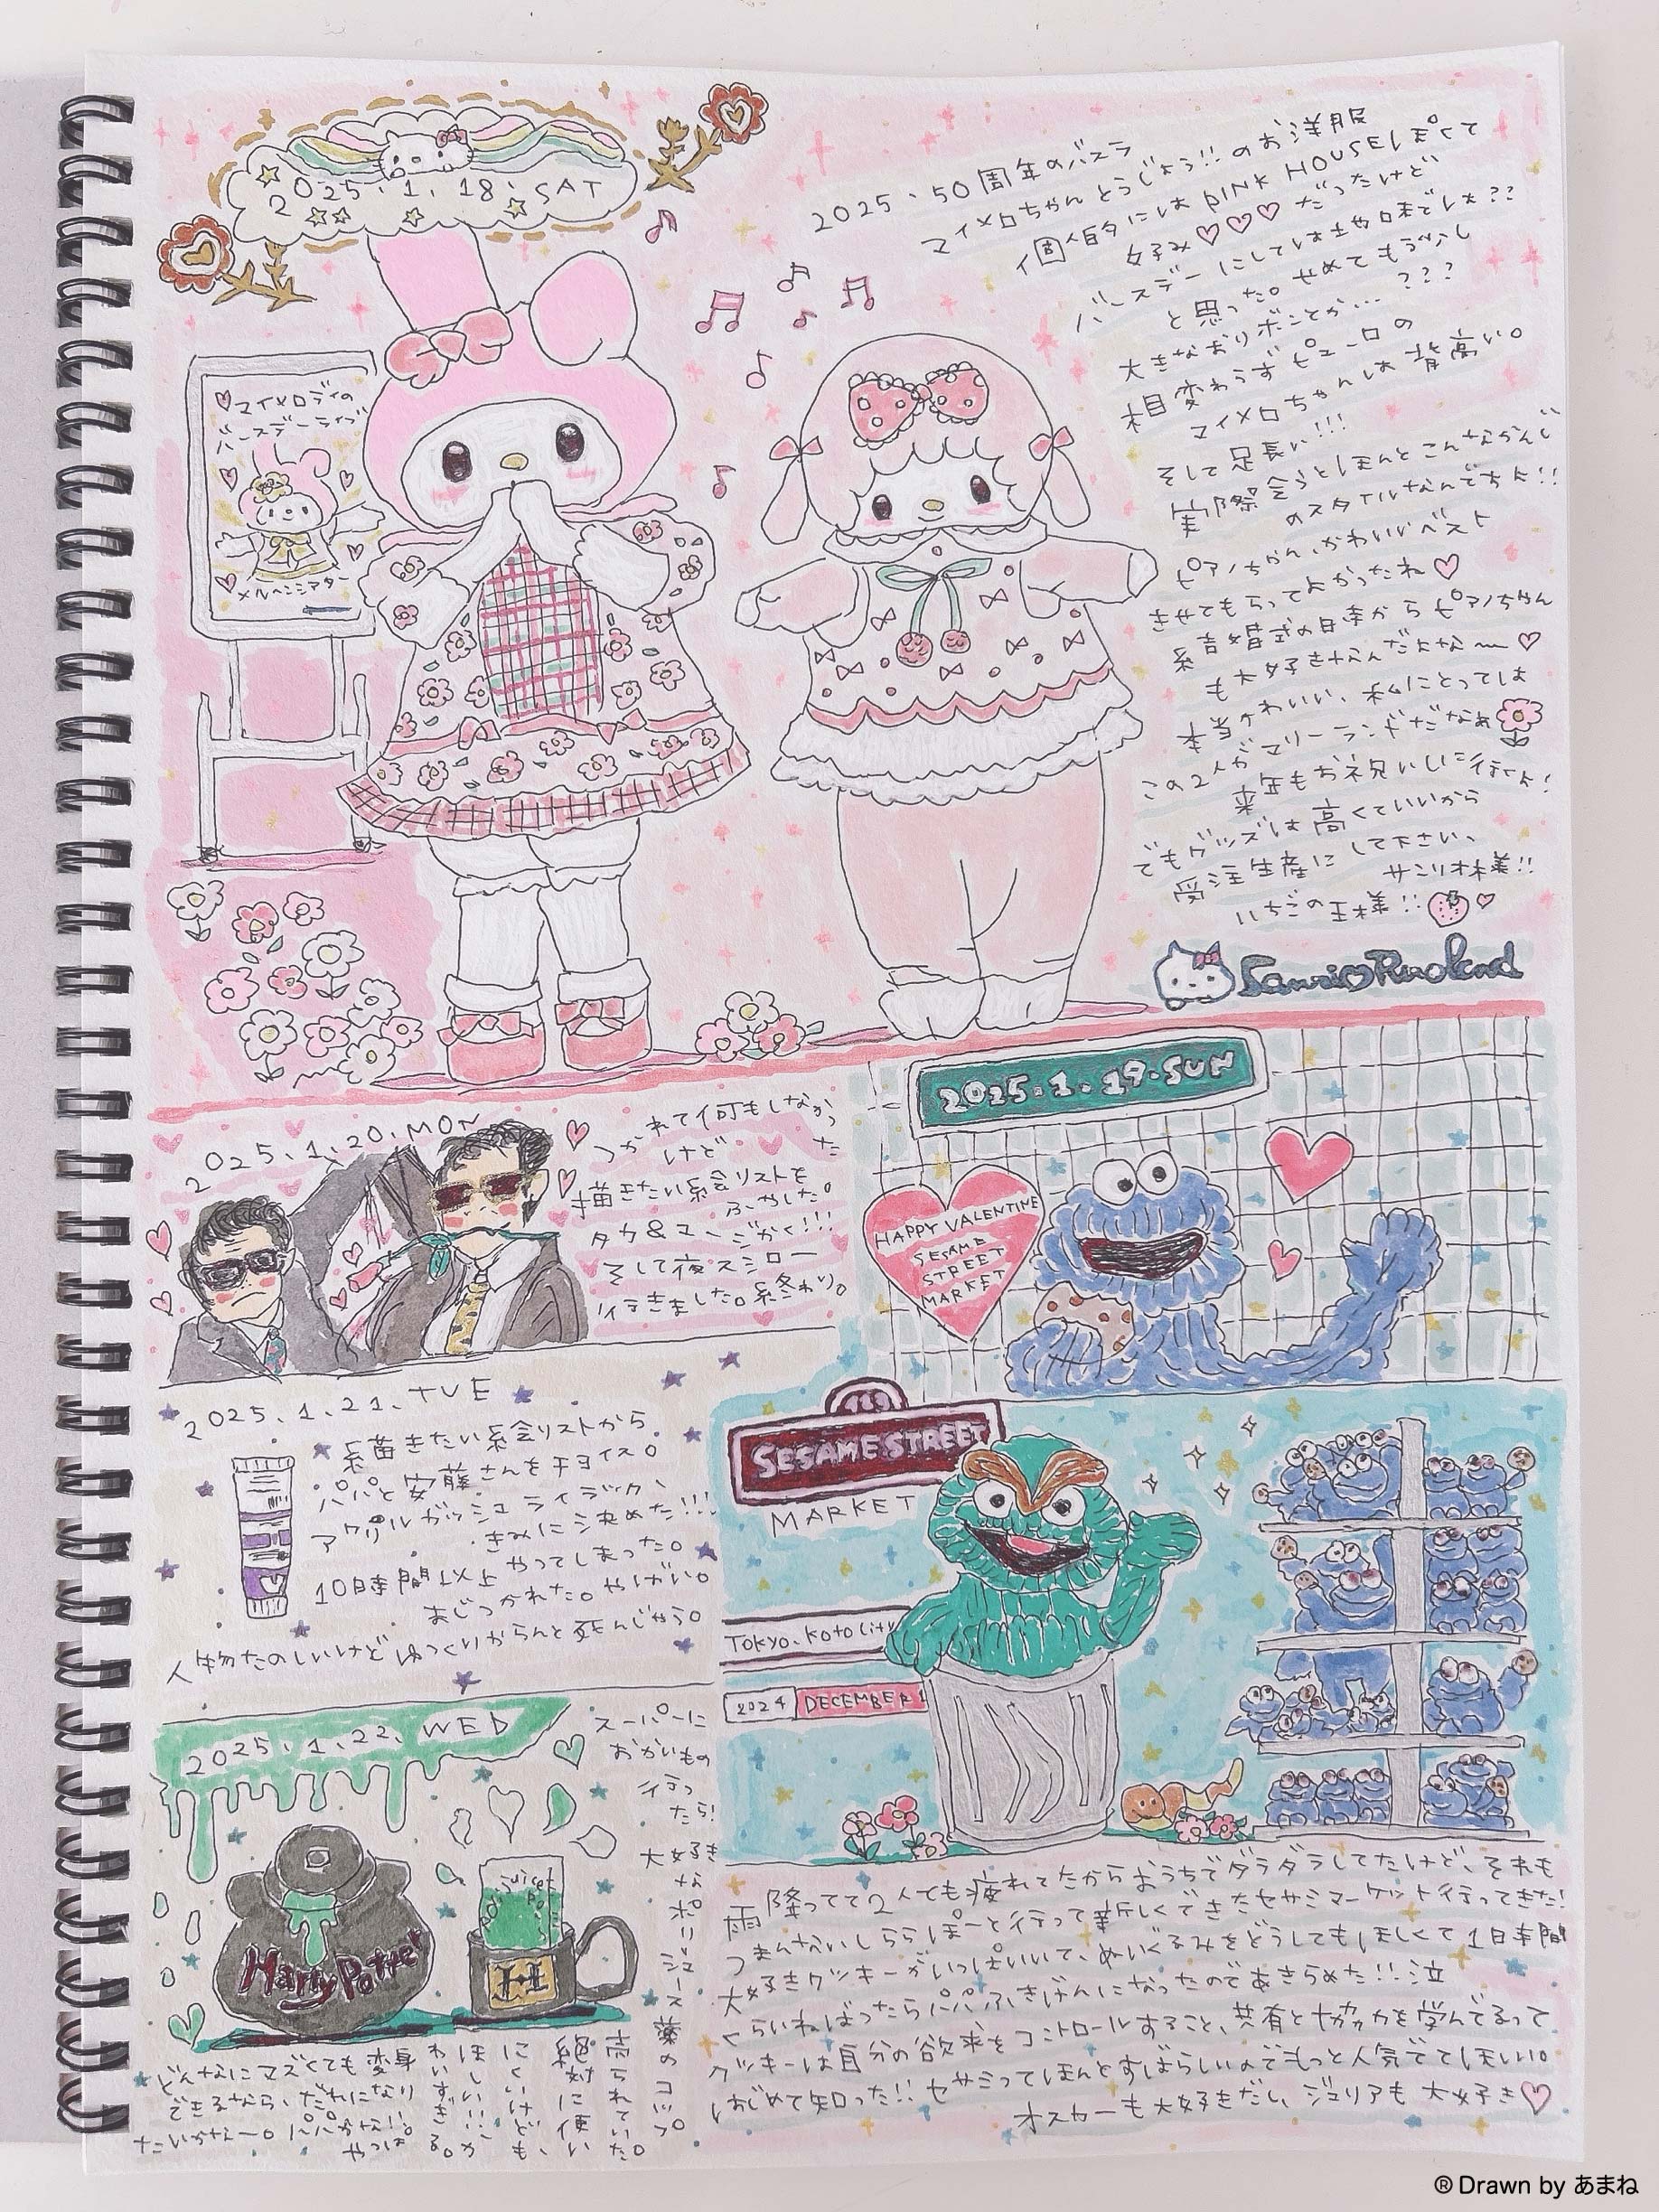 2025.1.18.SAT
マイメロディの
バースデーライブ
メルヘンシアター
2025、50周年のバスデ
マイメロちゃんとうじょう!!のお洋服
個人的にはPINK HOUSEぽくて
好み♡♡♡だったけど
バースデーにしては
と思った。やめてもう少し
大きなおリボンとか…???
相変わらずピューロの
マイメロちゃんは背高い。
そして足長い!!!
実際会うとほんとこんなかんじ
のスタイルなんですよ!!
ピアノちゃん、かわいいベスト
きせてもらってよかったね♡
結婚式の日本からピアノちゃん
も大好きなんだよな〜♡
本当かわいい、私にとっては
この2人がマリーランドだなあ
来年もお祝いしに行くよ!
でもグッズは高くていいから
受注生産にして下さい、
サンリオ様!!
いちごの王様!!
Sanrio Puroland
2025.1.19.SUN
HAPPY VALENTINE
SESAME
STREET
MARKET
2025.1.20.MON
つかれて何もしなかった
けど
描きたい絵リストを
ふやした。
タカ&ユージかく!!!
そして夜スシロー
行きました。終わり。
2025.1.21.TUE
描きたい絵リストから
パパと安藤さんをチョイス。
アクリルガッシュ ライラック、
きみに決めた!!!
10時間以上やってしまった。
まじつかれた。やばい。
人物たのしいけどゆっくりやらんと死んじゃう。
SESAME STREET
MARKET
TOKYO, KOTO CITY
2024 DECEMBER 1
雨降ってて2人とも疲れてたからおうちでダラダラしてたけど、それも
つまんないしららぽーと行って新しくできたセサミマーケット行ってきた!
大好きクッキーがいっぱいいて、ぬいぐるみをどうしてもほしくて1時間
くらいねばったらパパふきげんになったのであきらめた!!泣
クッキーは自分の欲求をコントロールすること、共有と協力を学んでるって
はじめて知った!!セサミってほんとすばらしいのでもっと人気でてほしい。
オスカーも大好きだし、ジュリアも大好き♡
2025.1.22.WED
スーパーに
おかいもの
行っ
たら!
大好き
なポリジュース薬のコップ
売られていた。
絶対に使い
にくいけども、
ほしい!!か
わいすぎる。
Harry Potter
Polyjuice Potion
H
どんなにマズくても変身
できるなら、だれになり
たいかなー。パパかな!!
やっぱ。
® Drawn by あまね